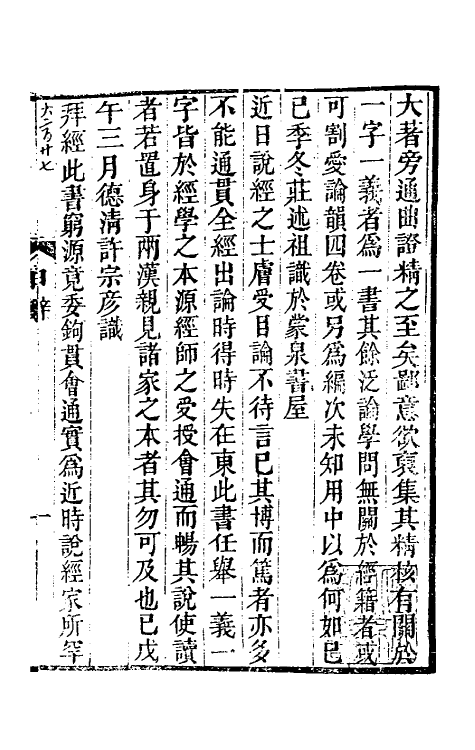 大著旁通曲證精之至矣鄙意欲裒集其精核有關於
一字一義者爲一書其餘泛論學問無關於經籍者或
可割愛論韻四卷或另爲編次未知用中以爲何如已
巳季冬莊述祖識於蒙泉書屋
近日說經之士膚受目論不待言已其博而篤者亦多
不能通貫全經出論時得時失在東此書任舉一義一
字皆於經學之本源經師之受授會通而暢其說使讀
者若置身于兩漢親見諸家之本者其勿可及也已戊
午三月德清許宗彦識
拜經此書窮源竟委鉤貫會通實爲近時說經家所罕
弁辭
一
六百廿七